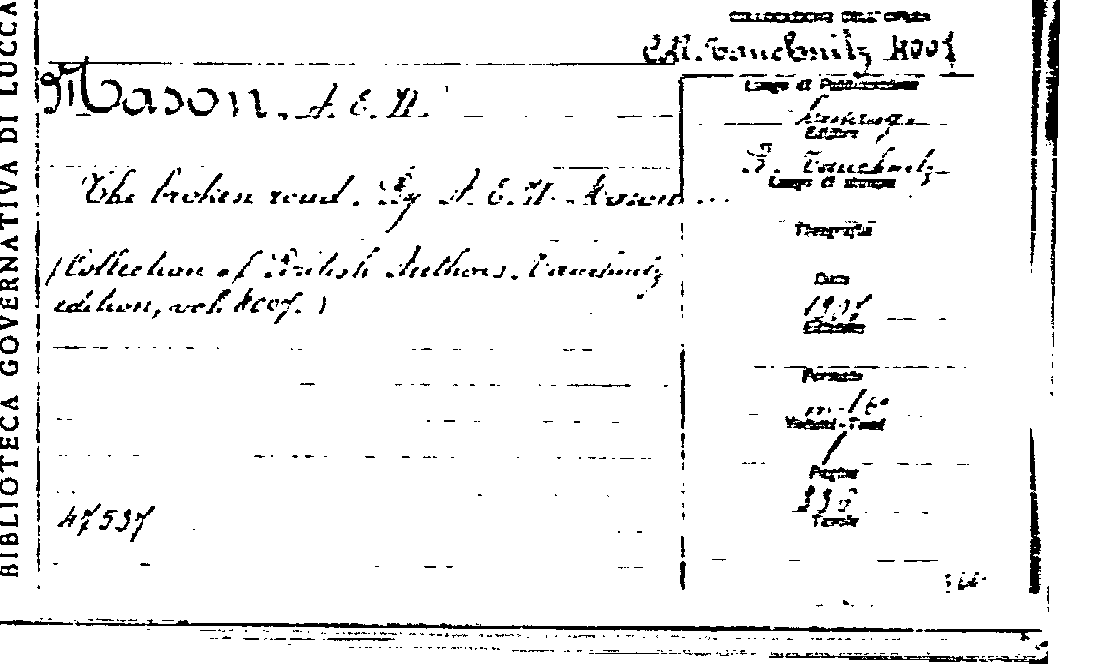 BIBLIOTECA GOVERNATIVA DI LUCCA
COLLOCAZIONE DELL'OPERA
Coll. Tauchnitz 4007
Mason, A. E. W.
The broken road. By A. E. W. Mason ...
(Collection of British Authors. Tauchnitz
edition, vol. 4007.)
47537
Luogo di Pubblicazione
Leipzig
Editore
B. Tauchnitz
Luogo di stampa
Tipografia
Data
1907
Edizione
Formato
in-16°
Volumi-Tomi
1
Pagine
336
Tavole